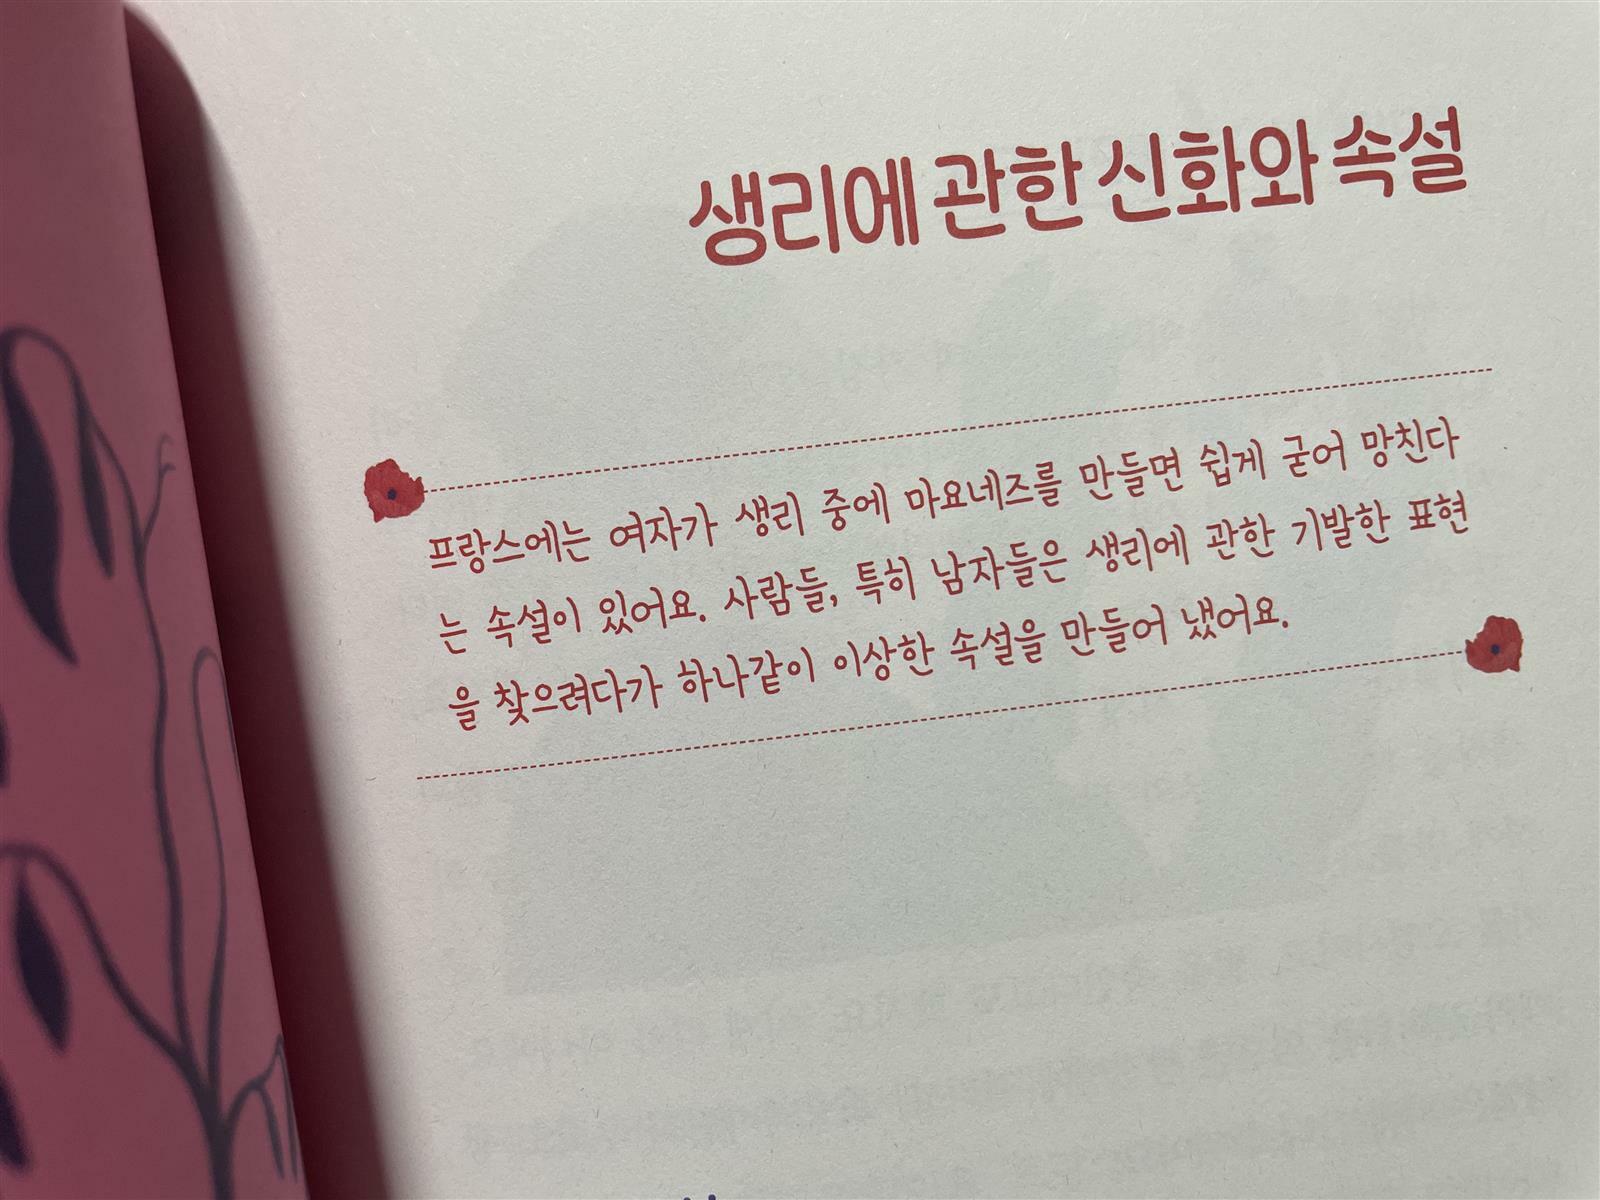 생리에 관한 신화와 속설
프랑스에는 여자가 생리 중에 마요네즈를 만들면 쉽게 굳어 망친다
는 속설이 있어요. 사람들, 특히 남자들은 생리에 관한 기발한 표현
을 찾으려다가 하나같이 이상한 속설을 만들어 냈어요.